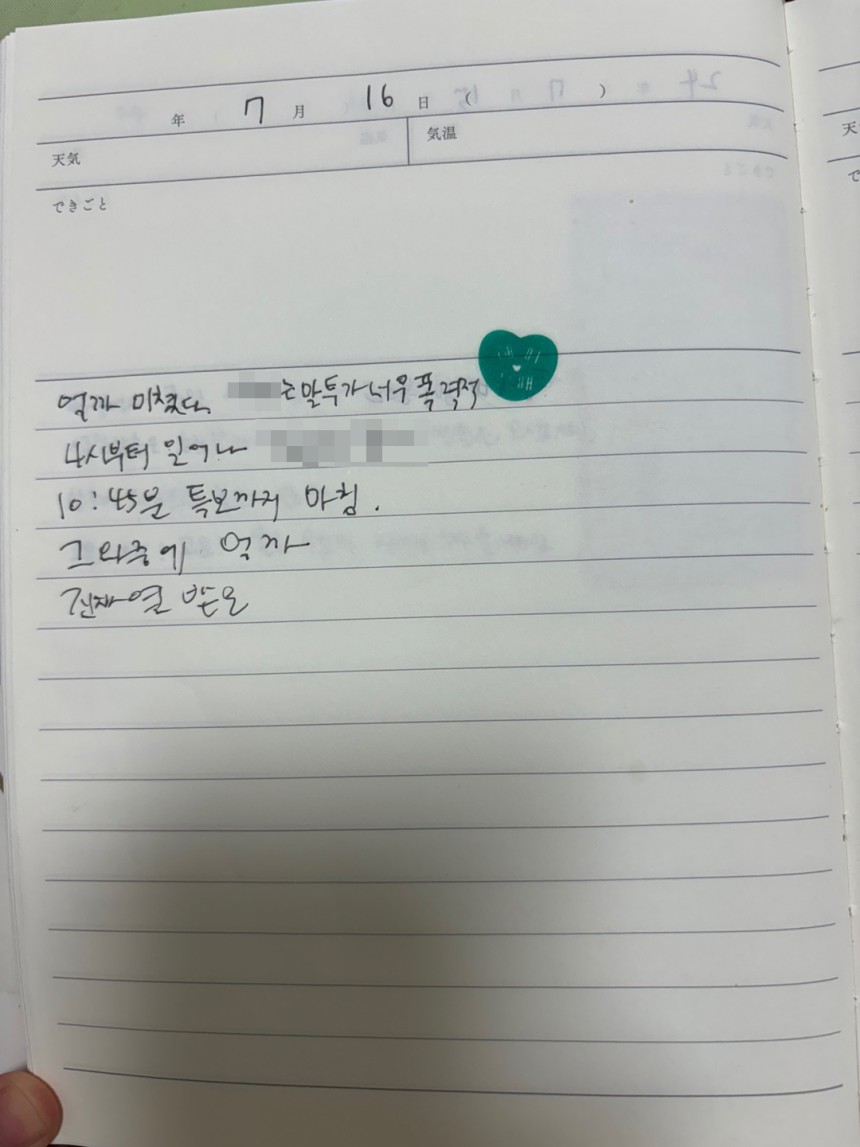 年 7 月 16 日 ( )
天気 気温
できごと
억까 미쳤다. 는 말투가 너무 폭력적
4시부터 일어나
10:45분 특보까지 마침.
그 와중에 억까
진짜 열 받음